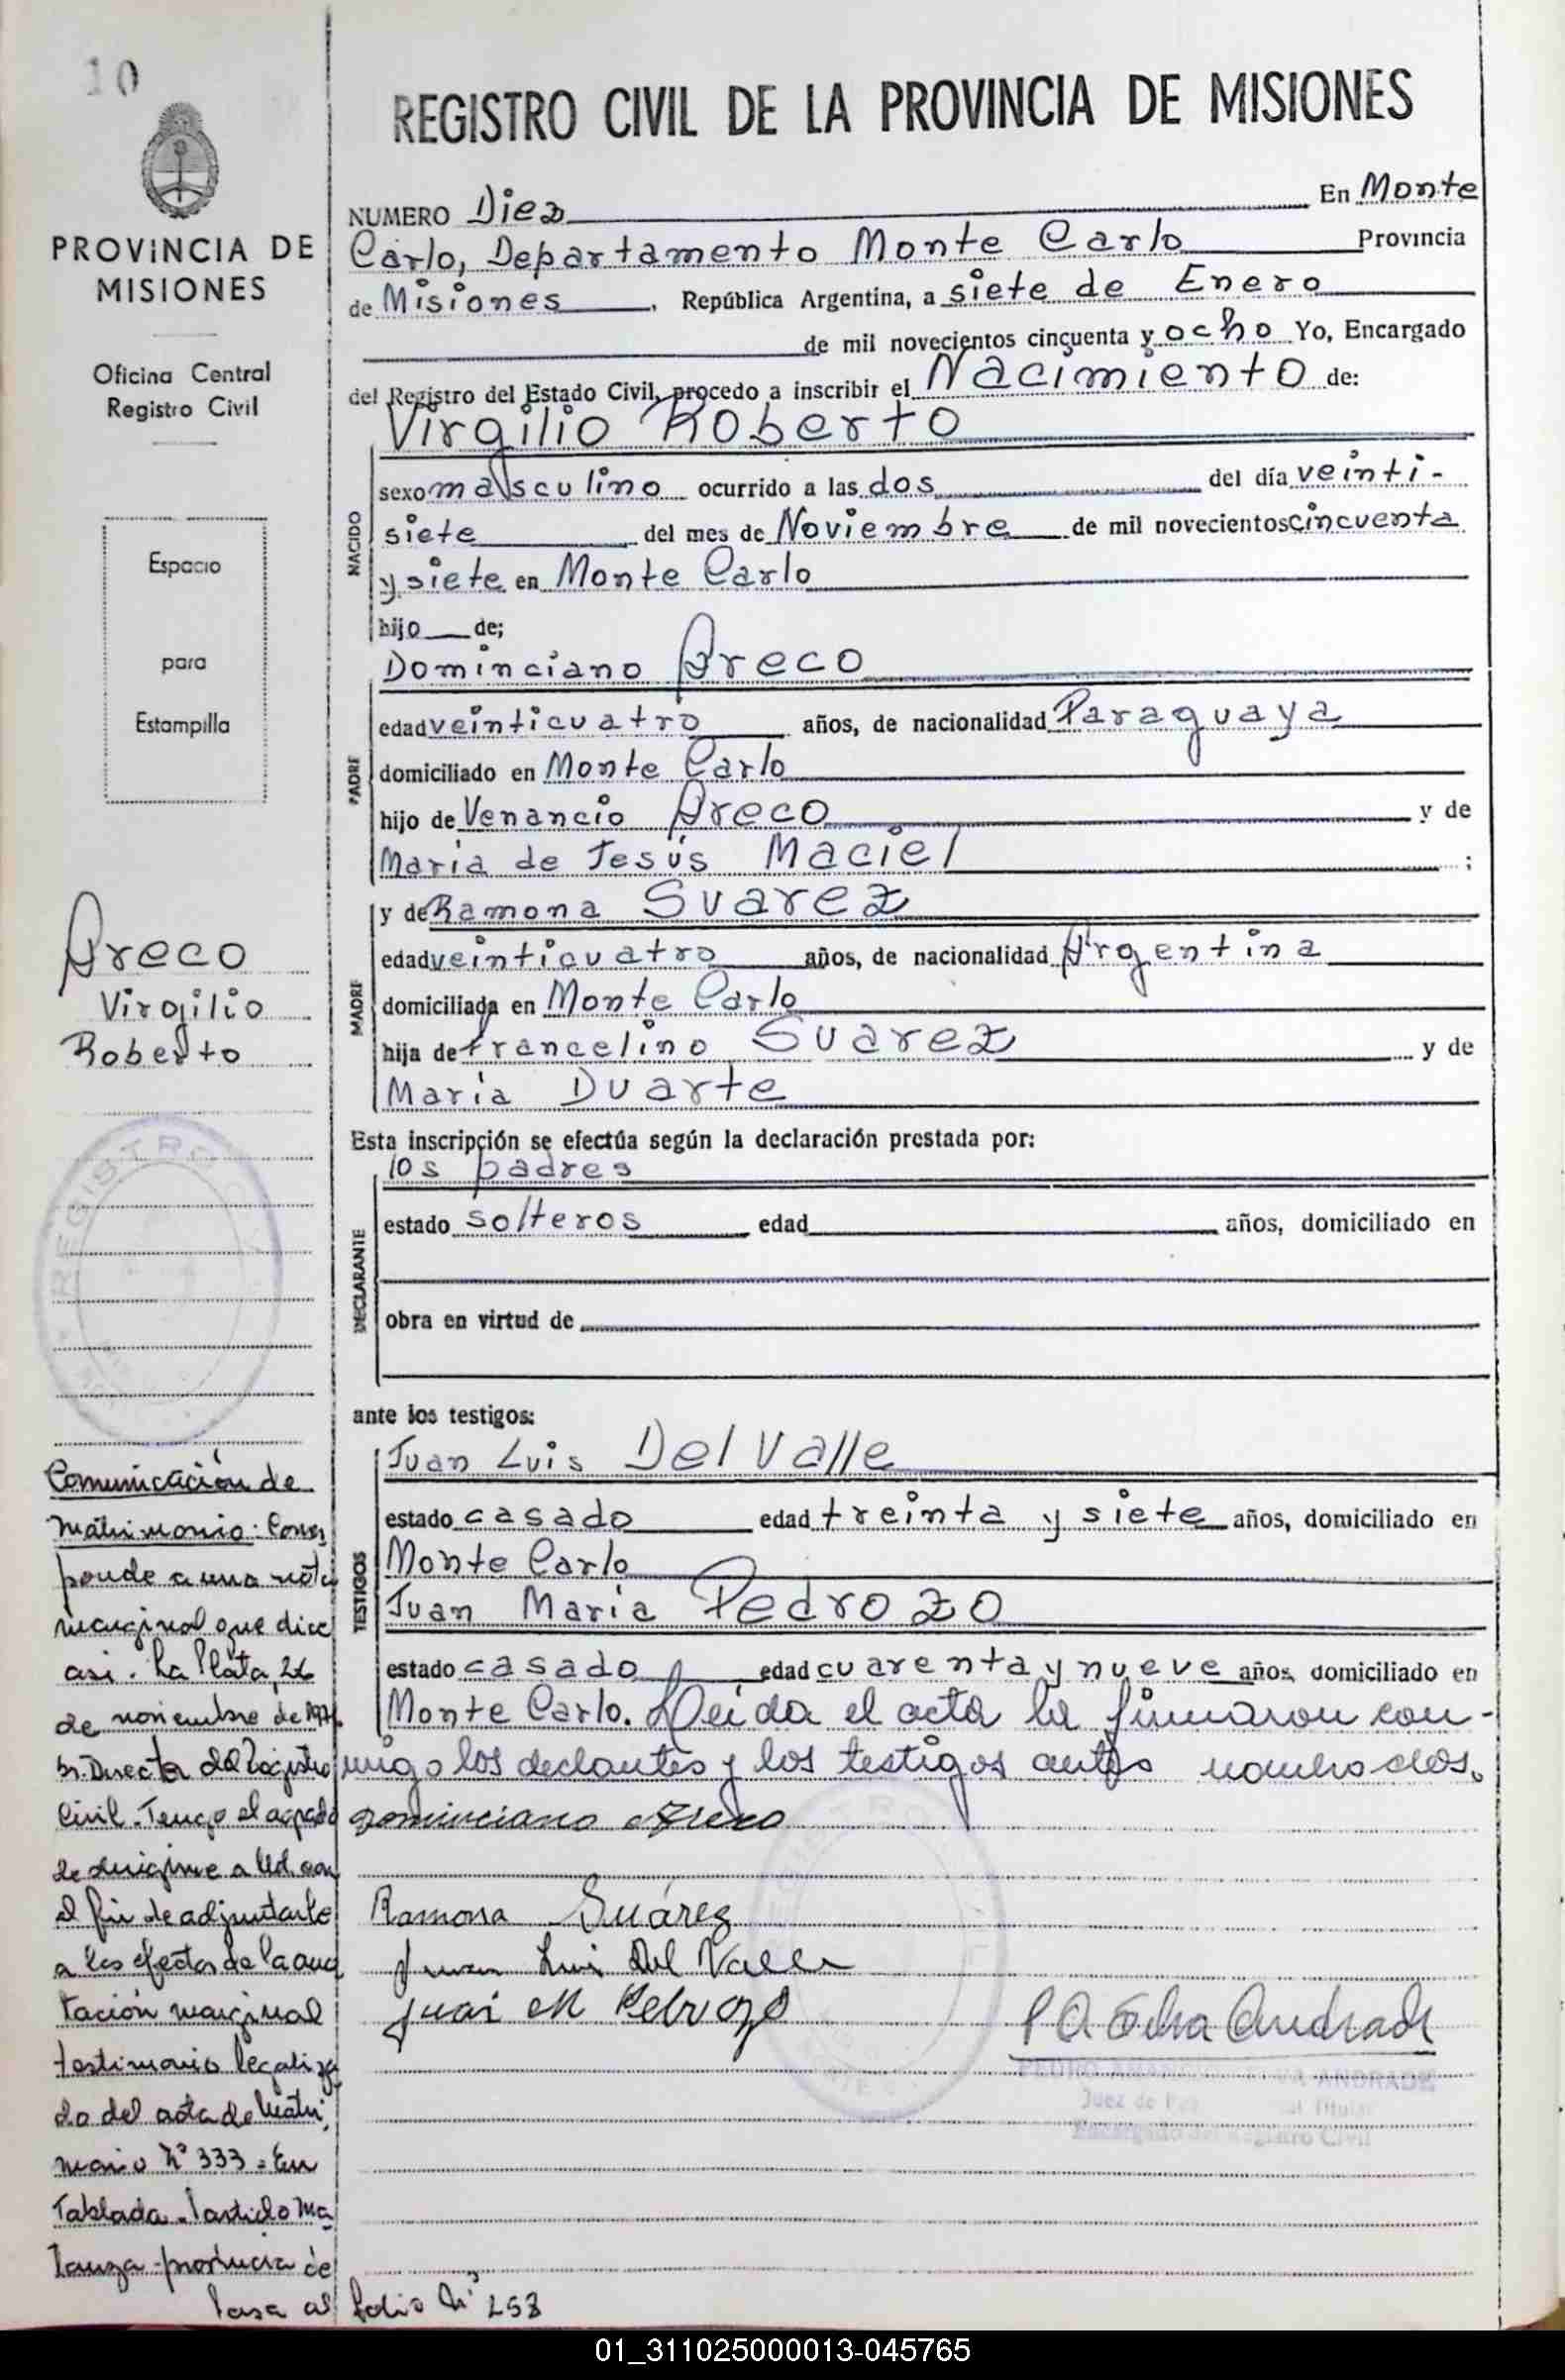 10
PROVINCIA DE
MISIONES
Oficina Central
Registro Civil
Espacio
para
Estampilla
Areco
Virgilio
Roberto
REGISTRO
Comunicación de
Matrimonio: Corres
ponde a una nota
marginal que dice
asi. La Plata, 26
de noviembre de 197
Sr. Director del Registro
Civil. Tengo el agrado
de dirigirme a Ud. con
el fin de adjuntarle
a los efectos de la ano
tación marginal
testimonio legaliza
do del acta de Matri
monio Nº 333 = En
Tablada - Partido Ma
tanza - provincia de
Pasa al folio Nº 258
REGISTRO CIVIL DE LA PROVINCIA DE MISIONES
NUMERO Diez En Monte
Carlo, Departamento Monte Carlo Provincia
de Misiones, República Argentina, a siete de Enero
de mil novecientos cincuenta y ocho Yo, Encargado
del Registro del Estado Civil, procedo a inscribir el Nacimiento de:
Virgilio Roberto
NACIDO
sexo masculino ocurrido a las dos del día veinti-
siete del mes de Noviembre de mil novecientos cincuenta
y siete en Monte Carlo
hijo de;
Dominciano Areco
PADRE
edad veinticuatro años, de nacionalidad Paraguaya
domiciliado en Monte Carlo
hijo de Venancio Areco y de
María de Jesús Maciel;
y de Ramona Suarez
MADRE
edad veinticuatro años, de nacionalidad Argentina
domiciliada en Monte Carlo
hija de Francelino Suarez y de
María Duarte
Esta inscripción se efectúa según la declaración prestada por:
los padres
DECLARANTE
estado solteros edad años, domiciliado en
obra en virtud de
ante los testigos:
Juan Luis Del Valle
TESTIGOS
estado casado edad treinta y siete años, domiciliado en
Monte Carlo
Juan María Pedrozo
estado casado edad cuarenta y nueve años, domiciliado en
Monte Carlo. Leída el acta la firmaron con-
migo los declantes y los testigos antes nombrados.
Dominciano Areco
Ramona Suárez
Juan Luis Del Valle
Juan M Pedrozo
Andrade
ANDRADE
Juez de
Encargado del Registro Civil
01_311025000013-045765